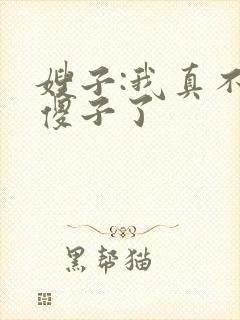 嫂子:我真不
傻子了
黑帮猫